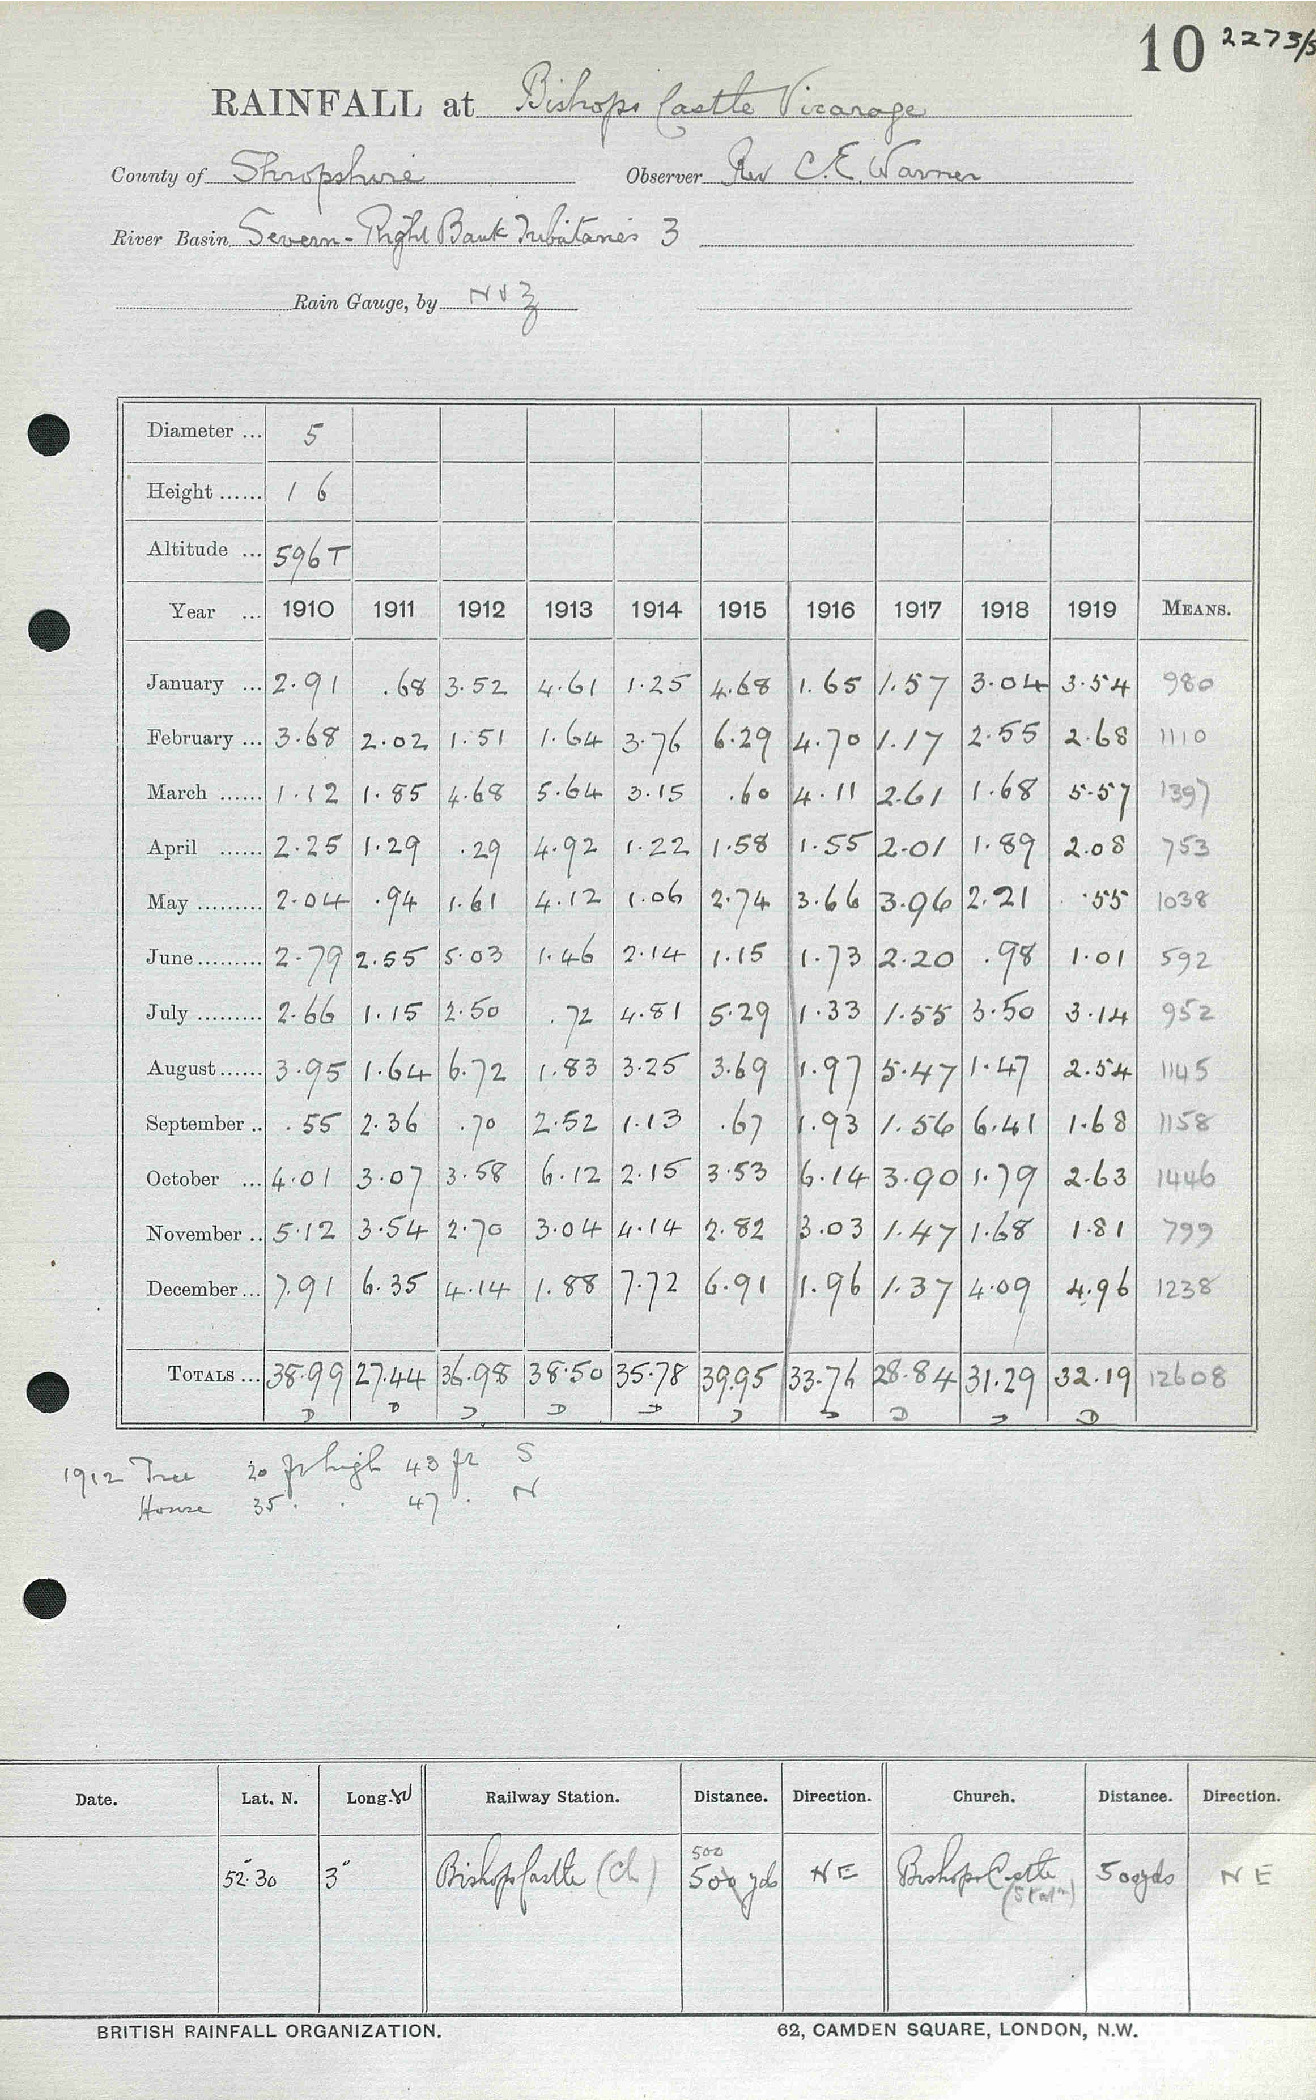 10 2273/3
RAINFALL at Bishops Castle Vicarage
County of Shropshire Observer Rev C.E. Warner
River Basin Severn - Right Bank Tributaries 3
Rain Gauge, by N & Z
Diameter ... 5
Height ...... 1 6
Altitude ... 596 T
Year ... 1910 1911 1912 1913 1914 1915 1916 1917 1918 1919 MEANS.
January ... 2.91 .68 3.52 4.61 1.25 4.68 1.65 1.57 3.04 3.54 980
February ... 3.68 2.02 1.51 1.64 3.76 6.29 4.70 1.17 2.55 2.68 1110
March ...... 1.12 1.85 4.68 5.64 3.15 .60 4.11 2.61 1.68 5.57 1397
April ...... 2.25 1.29 .29 4.92 1.22 1.58 1.55 2.01 1.89 2.08 753
May ......... 2.04 .94 1.61 4.12 1.06 2.74 3.66 3.96 2.21 .55 1038
June......... 2.79 2.55 5.03 1.46 2.14 1.15 1.73 2.20 .98 1.01 592
July ......... 2.66 1.15 2.50 .72 4.81 5.29 1.33 1.55 3.50 3.14 952
August...... 3.95 1.64 6.72 1.83 3.25 3.69 1.97 5.47 1.47 2.54 1145
September .. .55 2.36 .70 2.52 1.13 .67 1.93 1.56 6.41 1.68 1158
October ... 4.01 3.07 3.58 6.12 2.15 3.53 6.14 3.90 1.79 2.63 1446
November .. 5.12 3.54 2.70 3.04 4.14 2.82 3.03 1.47 1.68 1.81 799
December... 7.91 6.35 4.14 1.88 7.72 6.91 1.96 1.37 4.09 4.96 1238
TOTALS ... 38.99 27.44 36.98 38.50 35.78 39.95 33.76 28.84 31.29 32.19 12608
D D D D D D D D D D
1912 Tree 20 ft high 43 ft S
House 35 . . 47 . N
Date. Lat. N. Long. W Railway Station. Distance. Direction. Church. Distance. Direction.
500
52°30 3° Bishops Castle (Ch) 500 yds NE Bishops Castle 500 yds NE
(Statn)
BRITISH RAINFALL ORGANIZATION. 62, CAMDEN SQUARE, LONDON, N.W.